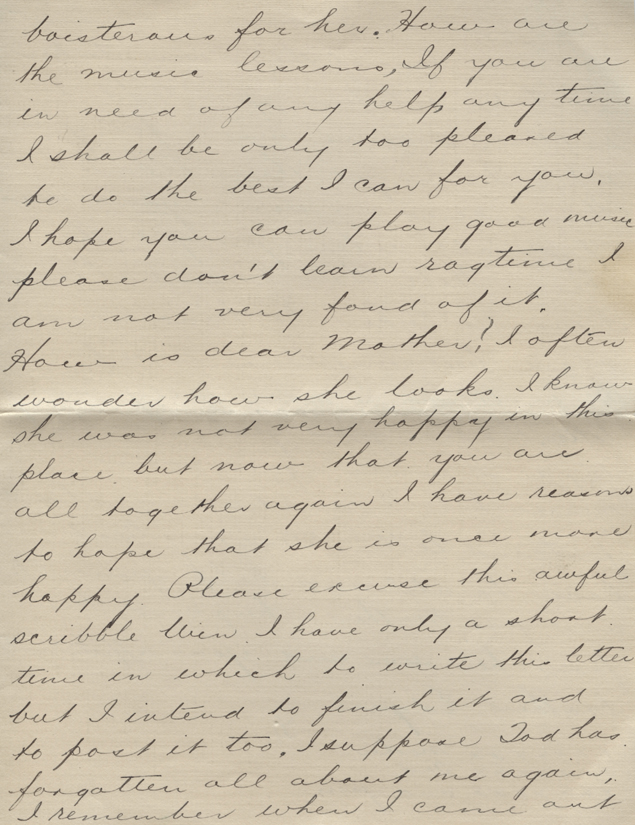 boisterous for her. How are
the music lessons, If you are
in need of any help any time
I shall be only too pleased
to do the best I can for you.
I hope you can play good music
please don't learn ragtime I
am not very fond of it.
How is dear Mother? I often
wonder how she looks. I know
she was not very happy in this
place but now that you are
all together again I have reasons
to hope that she is once more
happy. Please excuse this awful
scribble Win. I have only a short
time in which to write this letter
but I intend to finish it and
to post it too. I suppose Tod has
forgotten all about me again,
I remember when I came out